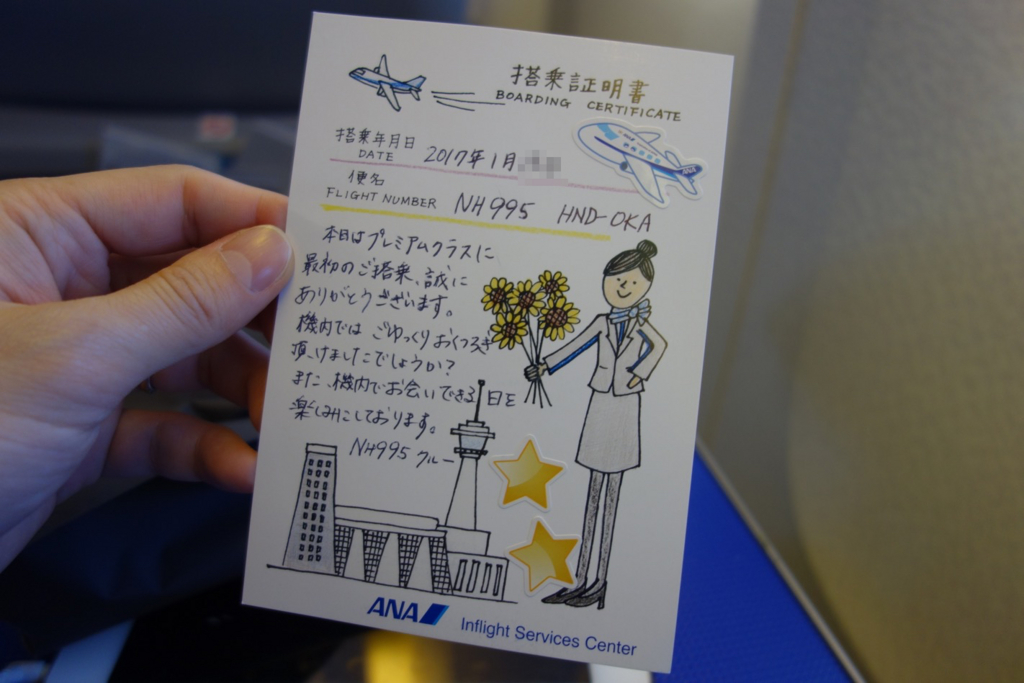 搭乗証明書
BOARDING CERTIFICATE
搭乗年月日
DATE 2017年1月
ANA
便名
FLIGHT NUMBER NH995 HND-OKA
本日はプレミアムクラスに
最初のご搭乗、誠に
ありがとうございます。
機内では ごゆっくりおくつろぎ
頂けましたでしょうか?
また、機内でお会いできる日を
楽しみにしております。
NH995 クルー
ANA
Inflight Services Center